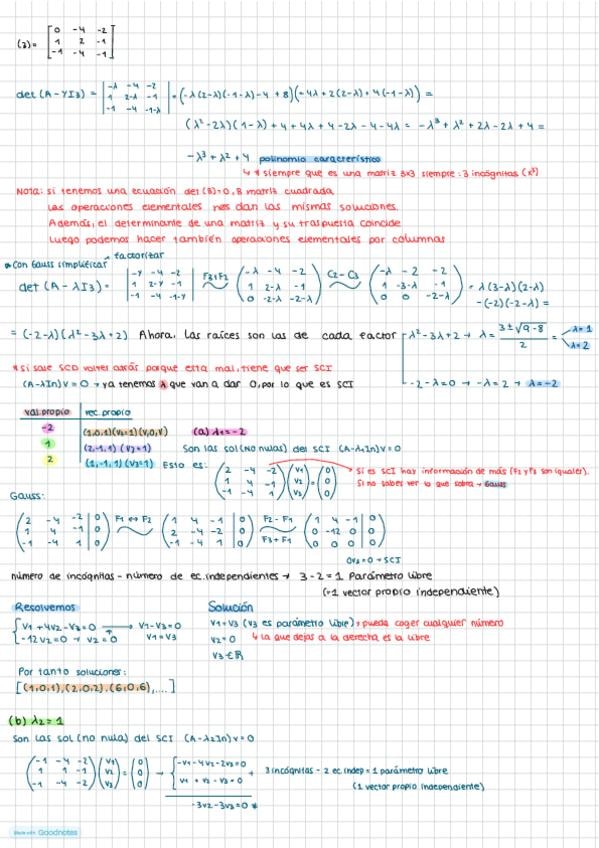 (3) = [0 -4 -2
1 2 -1
-1 -4 -1]
det (A - γI3) = |-λ -4 -2
1 2-λ -1
-1 -4 -1-λ| = (-λ(2-λ)(-1-λ) -4 + 8)(-4λ + 2(2-λ) + 4(-1-λ)) =
(λ² - 2λ)(1-λ) + 4 + 4λ + 4 - 2λ - 4 - 4λ = -λ³ + λ² + 2λ - 2λ + 4 =
-λ³ + λ² + 4 polinomio característico
↳ * siempre que es una matriz 3x3 siempre: 3 incógnitas (x³)
Nota: si tenemos una ecuación det (B) = 0, B matriz cuadrada
Las operaciones elementales nos dan las mismas soluciones.
Además, el determinante de una matriz y su traspuesta coincide
Luego podemos hacer también operaciones elementales por columnas
* Con Gauss simplificar → factorizar
det (A - λI3) = |-γ -4 -2
1 2-γ -1
-1 -4 -1-γ| F3+F2 (-λ -4 -2
1 2-λ -1
0 -2-λ -2-λ) C2-C3 (-λ -2 -2
1 -3-λ -1
0 0 -2-λ) = λ(3-λ)(2-λ)
-(-2)(-2-λ) =
= (-2-λ)(λ² - 3λ + 2) Ahora, las raíces son las de cada factor λ² - 3λ + 2 → λ = 3 ± √9-8 / 2 = λ = 1
λ = 2
-2-λ = 0 → -λ = 2 → λ = -2
* Si sale SCD volver atrás porque esta mal, tiene que ser SCI
(A - λIn) v = 0 → ya tenemos λ que van a dar 0, por lo que es SCI
val. propio vec. propio
-2 (1,0,1) (V1=1) (V,0,V) (a) λ1 = -2
1 (2,-1,1) (V3=1) Son las sol (no nulas) del SCI (A - λ1In) v = 0
2 (1,-1,1) (V3=1) Esto es: (2 -4 -2
1 4 -1
-1 -4 1) (V1
V2
V3) = (0
0
0) Si es SCI hay información de más (F2 y F3 son iguales).
Si no sabes ver lo que sobra → Gauss
Gauss:
(2 -4 -2 | 0
1 4 -1 | 0
-1 -4 1 | 0) F1 ↔ F2 (1 4 -1 | 0
2 -4 -2 | 0
-1 -4 1 | 0) F2 - F1
F3 + F1 (1 4 -1 | 0
0 -12 0 | 0
0 0 0 | 0)
0V3 = 0 → SCI
número de incógnitas - número de ec. independientes → 3 - 2 = 1 Parámetro libre
(→ 1 vector propio independiente)
Resolvemos Solución
V1 + 4V2 - V3 = 0 → V1 - V3 = 0 V1 = V3 (V3 es parámetro libre) → pueda coger cualquier número
-12V2 = 0 → V2 = 0 V1 = V3 V2 = 0 ↳ la que dejas a la derecha es la libre
V3 ∈ ℝ
Por tanto soluciones:
[(1,0,1), (2,0,2), (6,0,6), ....]
(b) λ2 = 1
Son las sol (no nula) del SCI (A - λ2In) v = 0
(-1 -4 -2
1 1 -1
-1 -4 -2) (V1
V2
V3) = (0
0
0) → -V1 - 4V2 - 2V3 = 0
V1 + V2 - V3 = 0 + 3 incógnitas - 2 ec indep = 1 parámetro libre
(1 vector propio independiente)
-3V2 - 3V3 = 0 *
Made with Goodnotes